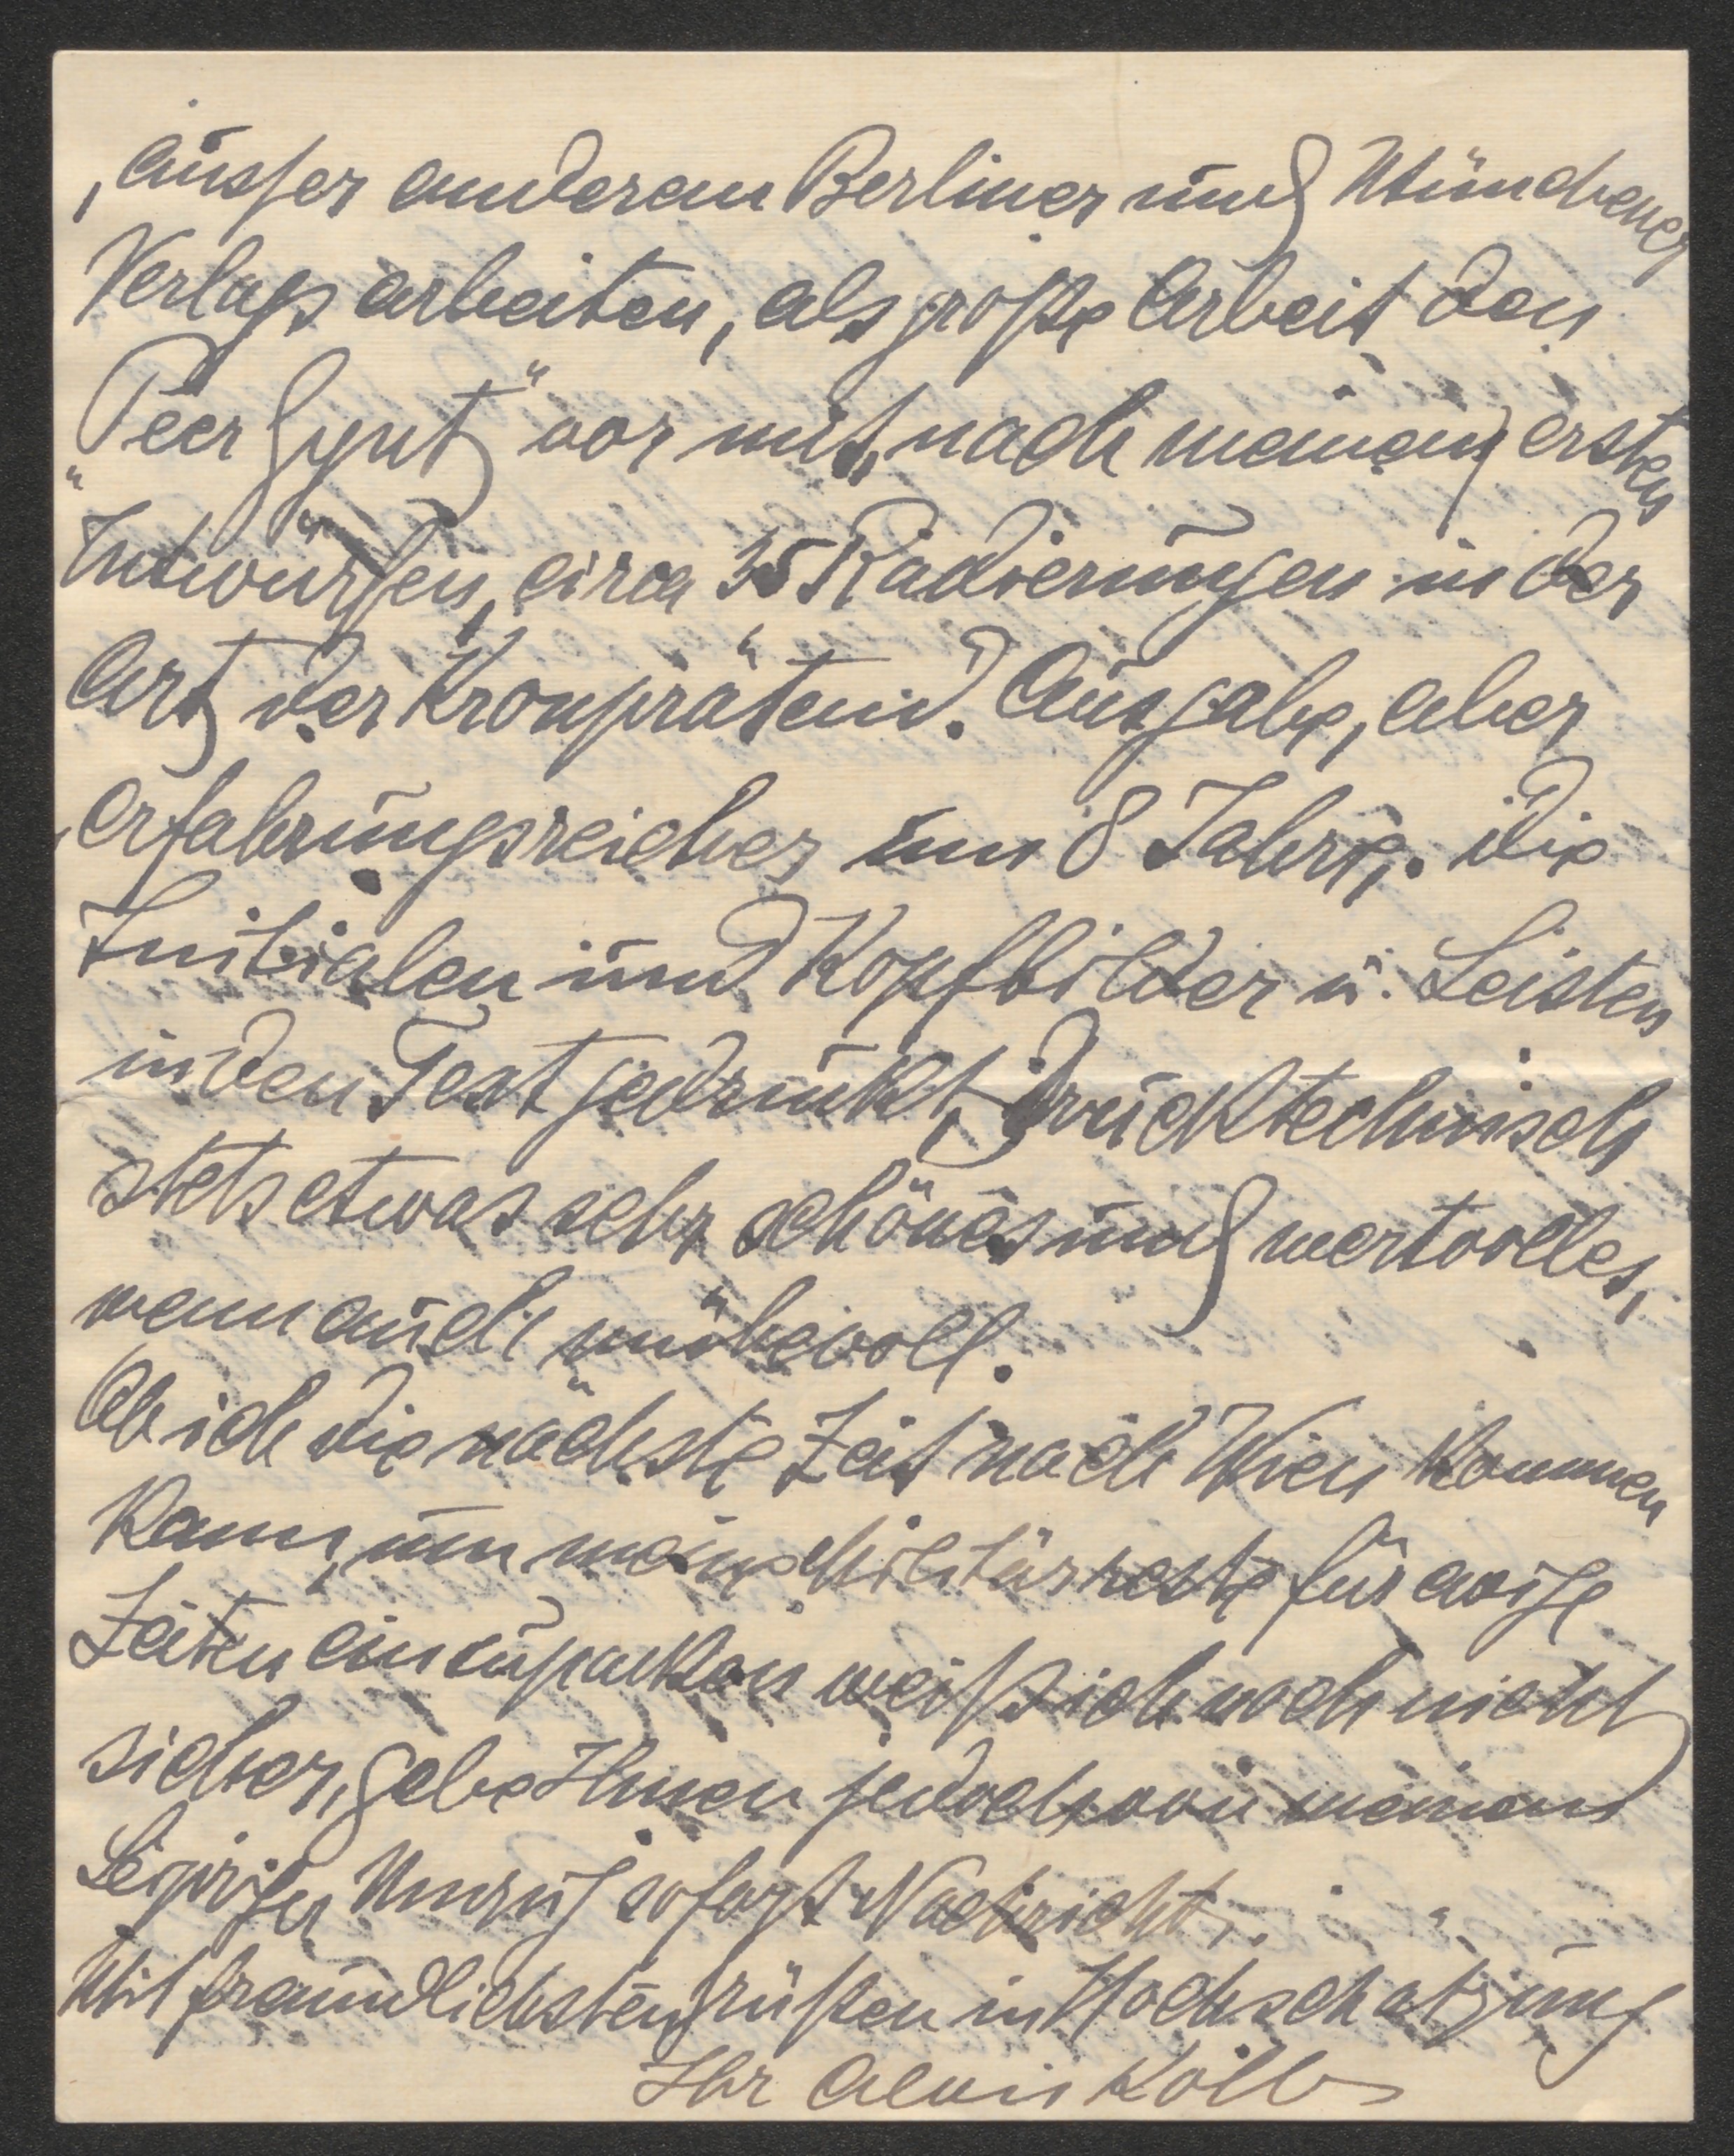 , ausser anderen Berliner und Münchener
Verlags arbeiten, als große Arbeit den
"Peer Gynt" vor mit, nach meinen ersten
Entwürfen, circa 35 Radierungen in der
Art der "Kronprätend." Ausgabe, aber
erfahrungsreicher um 8 Jahre. Die
Initialen und Kopfbilder u. Leisten
in den Text gedruckt, Drucktechnisch
stets etwas sehr schönes und wertvolles,
wenn auch mühevoll.
Ob ich die nächste Zeit nach Wien kommen
kann, um meine Militärreste für ewige
Zeiten einzupacken weiß ich noch nicht
sicher, gebe Ihnen jedoch von meinem
Leipziger Umzug sofort Nachricht.
Mit freundlichsten Grüßen in Hochschatzung
Ihr Alois Kolb